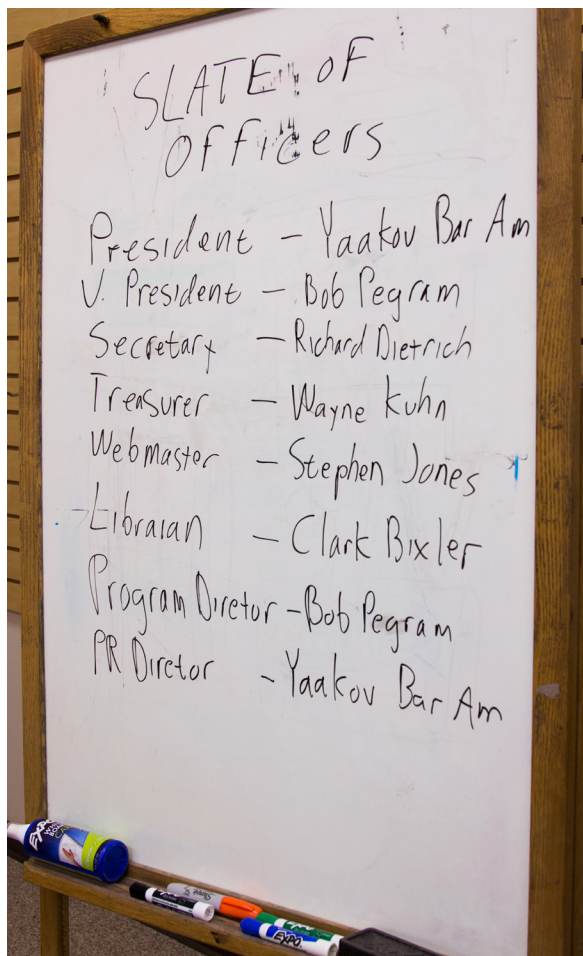 SLATE OF
OFFICERS
President - Yaakov Bar Am
V. President - Bob Pegram
Secretary - Richard Dietrich
Treasurer - Wayne Kuhn
Webmaster - Stephen Jones
Libraian - Clark Bixler
Program Diretor - Bob Pegram
PR Diretor - Yaakov Bar Am
EXPO
EXPO